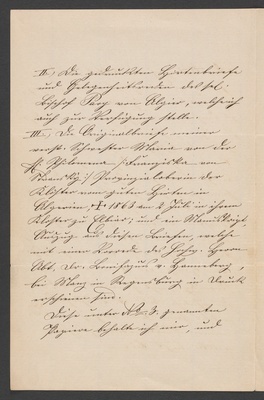 II. Die gedruckten Hirtenbriefe
und Gelegenheitsreden des sel.
Bischof Pavy von Algier, welche ich
auch zur Verfügung stelle.
III. Die Originalbriefe meiner
verst. Schwester Maria von der
hl. Philomena (Franziska von
) Provinzialoberin der
Klöster vom guten Hirten in
Algerien, † 1863 am 2 Juli in ihrem
Kloster zu El Biar; und ein Manuskript,
Auszug aus diesen Briefen, welche
mit einer Vorrede des Hochw. Herrn
Abt. Dr. Bonifazius v. Haneberg,
bei Manz in Regensburg in Druck
erschienen sind.
Diese unter No 3. genannten
Papiere behalte ich mir, und